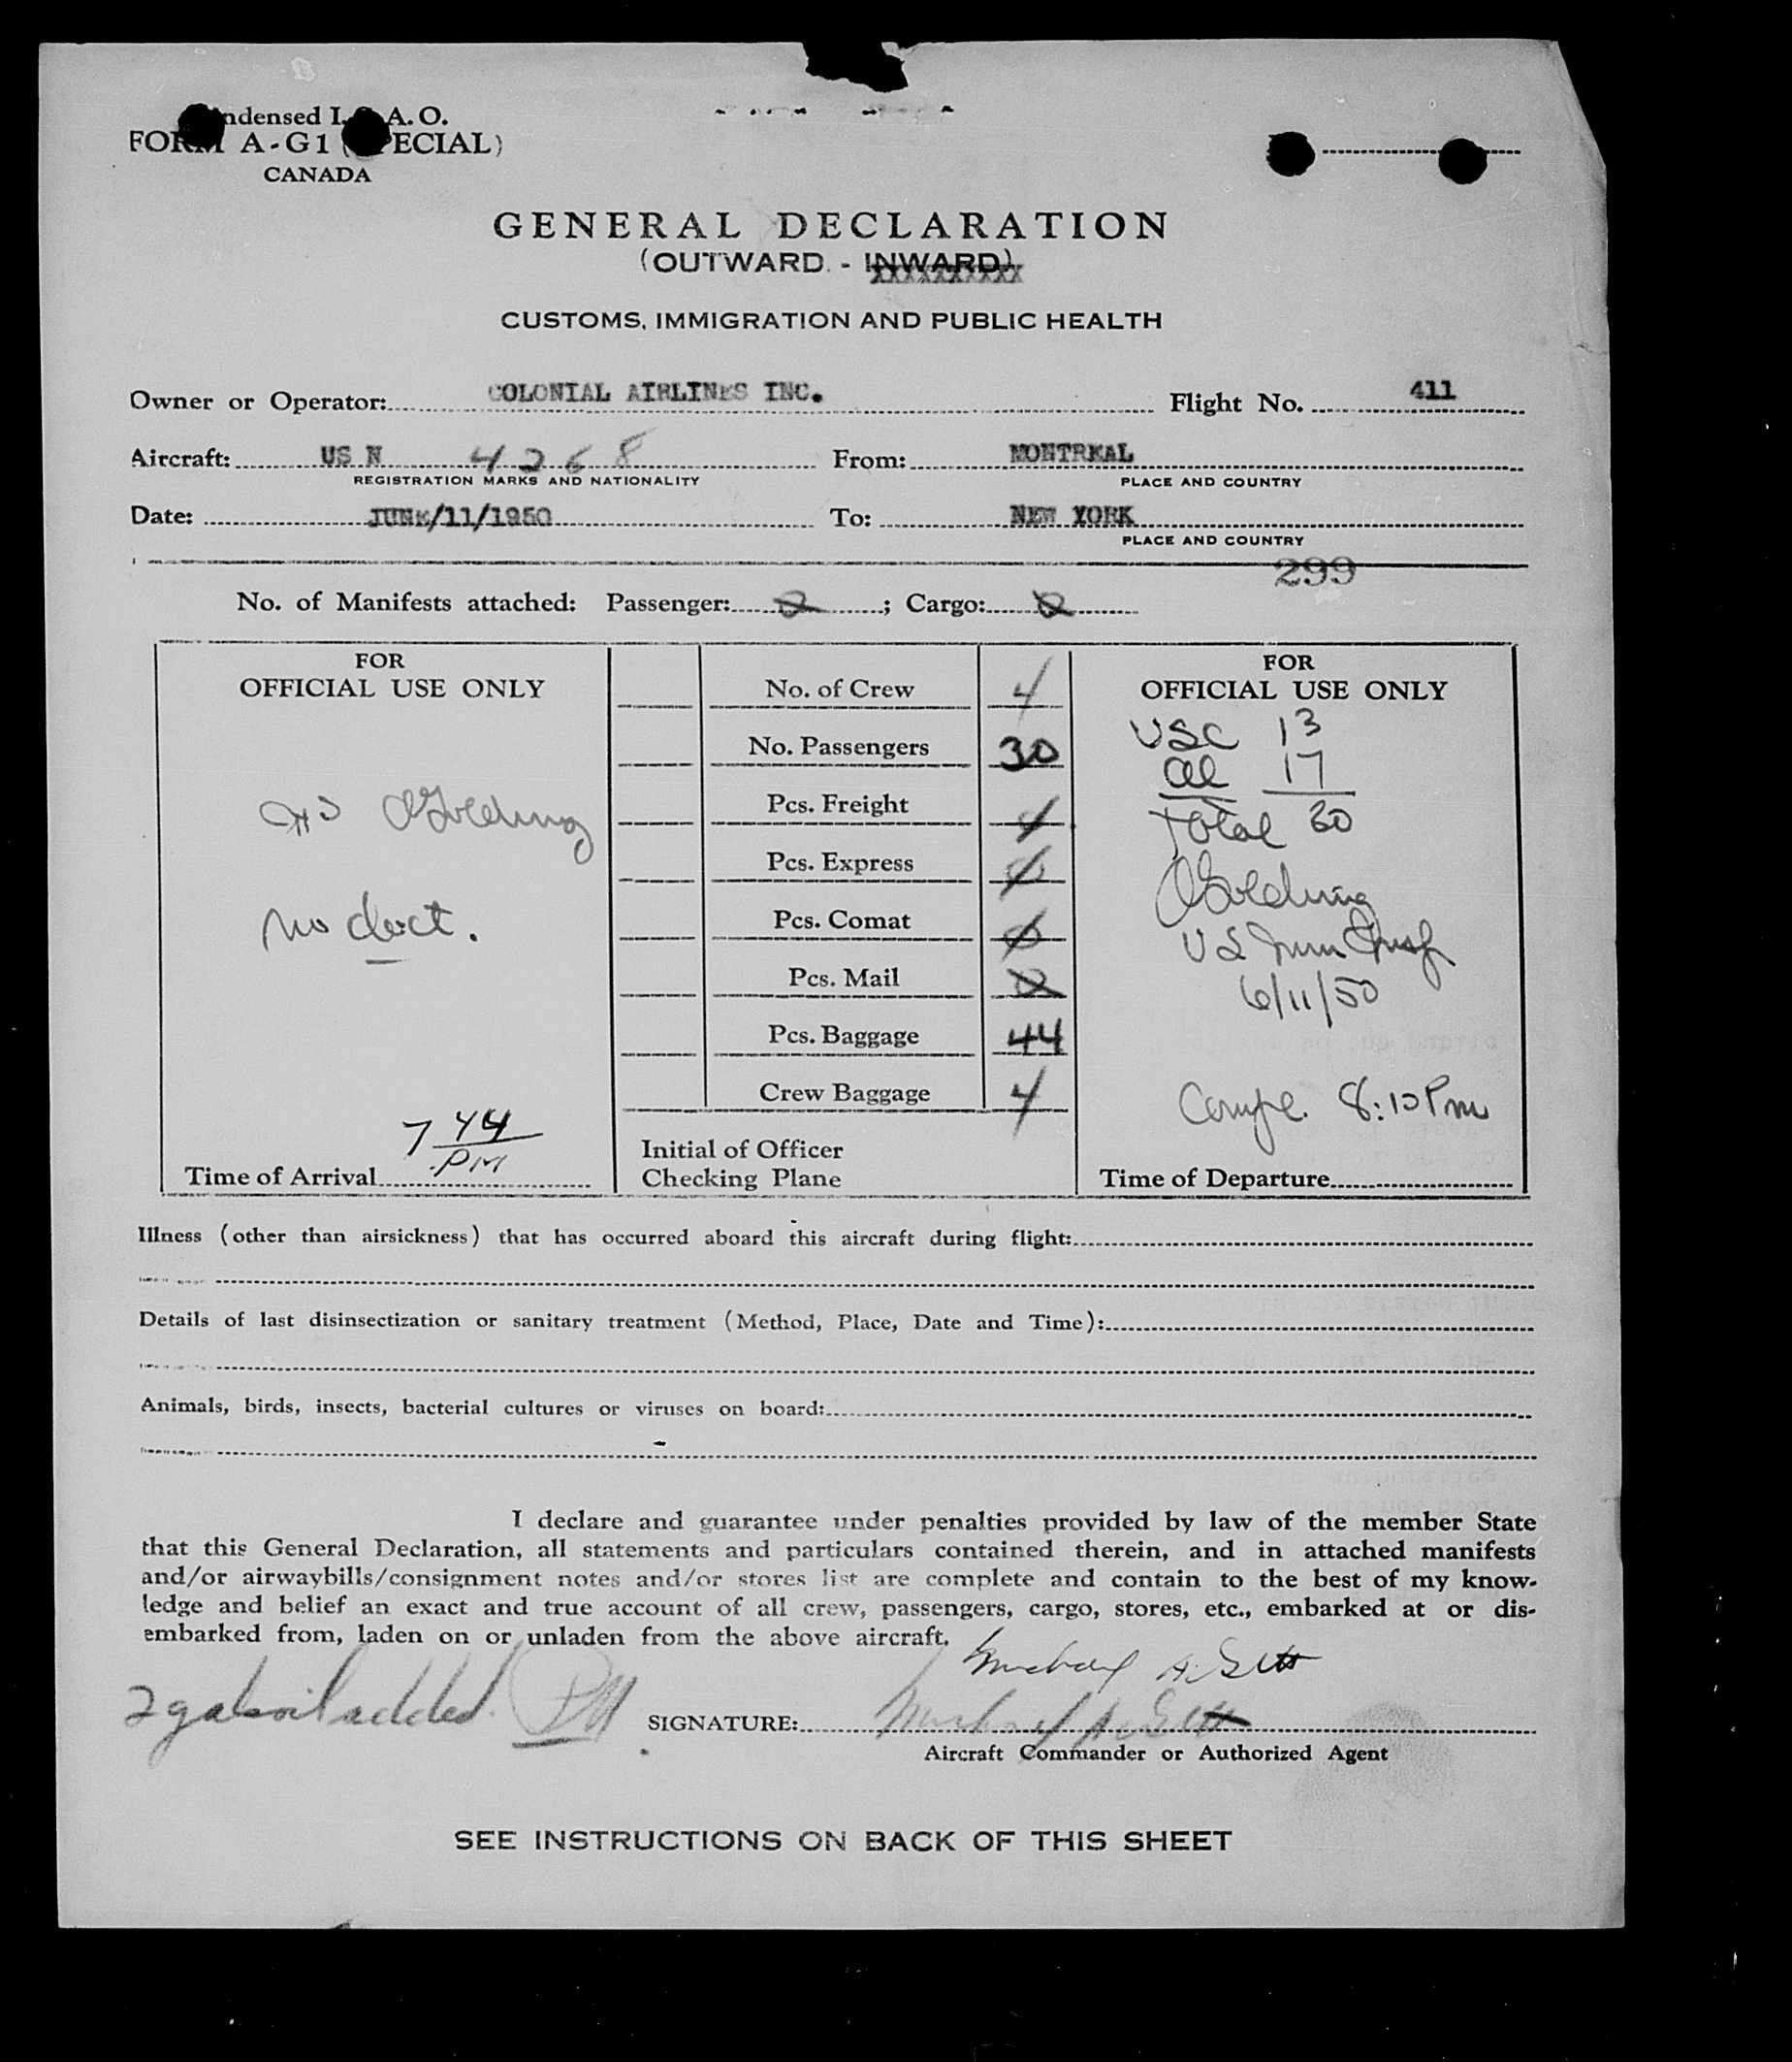 ndensed I. A.O.
FORM A-G1 (SPECIAL)
CANADA
GENERAL DECLARATION
(OUTWARD. - INWARD)
CUSTOMS, IMMIGRATION AND PUBLIC HEALTH
Owner or Operator: COLONIAL AIRLINES INC. Flight No. 411
Aircraft: US N 4268 From: MONTREAL
REGISTRATION MARKS AND NATIONALITY PLACE AND COUNTRY
Date: JUNE/11/1950 To: NEW YORK
PLACE AND COUNTRY
299
No. of Manifests attached: Passenger: 0 ; Cargo: 0
FOR
OFFICIAL USE ONLY
Golding
no doct.
7 44
PM
Time of Arrival
No. of Crew 4
No. Passengers 30
Pcs. Freight 4
Pcs. Express 0
Pcs. Comat 0
Pcs. Mail 0
Pcs. Baggage 44
Crew Baggage 4
Initial of Officer
Checking Plane
FOR
OFFICIAL USE ONLY
USC 13
al 17
Total 30
Golding
US Imm Insp
6/11/50
Compl. 8:10 Pm
Time of Departure
Illness (other than airsickness) that has occurred aboard this aircraft during flight:
Details of last disinsectization or sanitary treatment (Method, Place, Date and Time):
Animals, birds, insects, bacterial cultures or viruses on board:
I declare and guarantee under penalties provided by law of the member State
that this General Declaration, all statements and particulars contained therein, and in attached manifests
and/or airwaybills/consignment notes and/or stores list are complete and contain to the best of my know-
ledge and belief an exact and true account of all crew, passengers, cargo, stores, etc., embarked at or dis-
embarked from, laden on or unladen from the above aircraft.
Michael A.
2 gals oil added.
SIGNATURE: Michael A.
Aircraft Commander or Authorized Agent
SEE INSTRUCTIONS ON BACK OF THIS SHEET